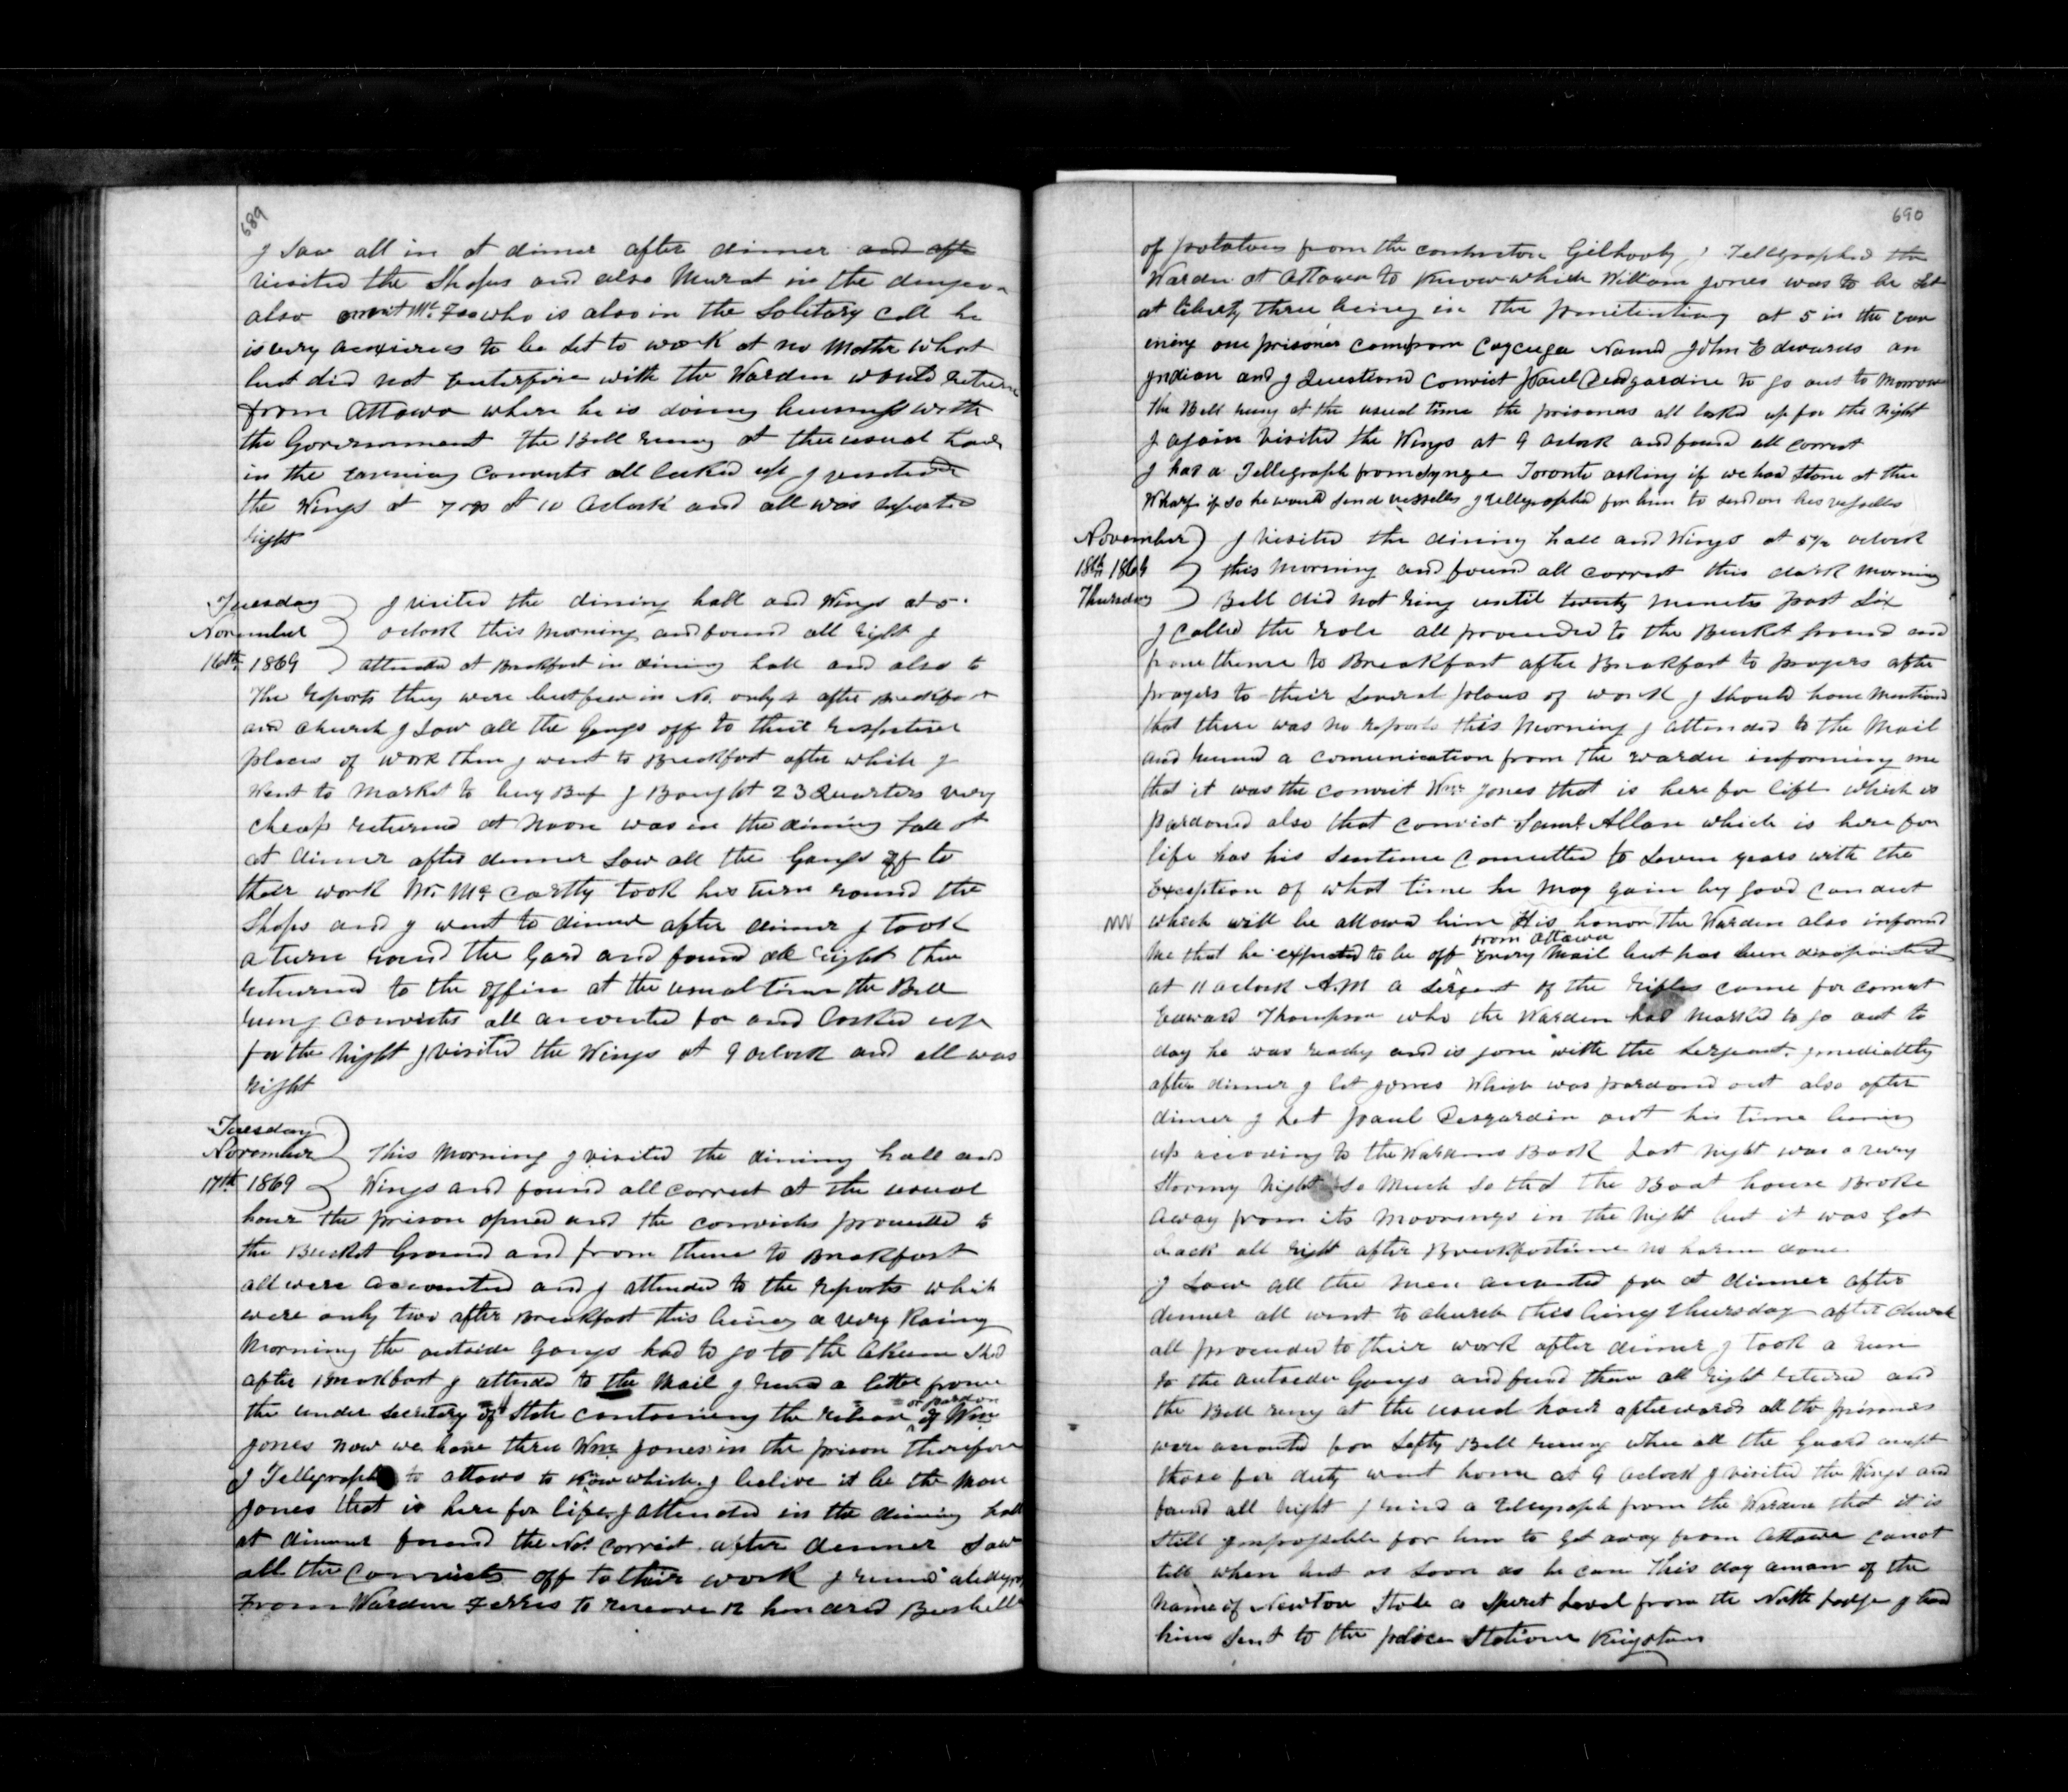 689
I Saw all in at dinner after dinner and afte
visited the Shops and also Murat in the dungeon
also convict Mc. Fee who is also in the Solitary Cell he
is very anxious to be let to work at no matter what
but did not Enterfire with the Warden would return
from Ottawa where he is doing business with
the Government the Bell rung at the usual hour
in the evening Convicts all locked up I visited
the Wings at 7 at 10 Oclock and all was reported
right
Tuesday
November
16th 1869
I visited the dining hall and Wings at 5
oclock this Morning and found all right I
attended at Breakfast in dining hall and also to
The reports they were but few in No. only 4 after Breakfast
and church I saw all the Gangs off to their respective
places of work then I went to Breakfast after which I
Went to Market to buy Beef I Bought 23 Quarters very
cheap returned at Noon was in the dining hall at
at dinner after dinner Saw all the Gangs off to
their work Mr. McCartty took his turn round the
Shops and I went to dinner after dinner I took
a turn round the Yard and found all right then
returned to the office at the usual time the Bell
rung Convicts all accounted for and Locked up
for the night I visited the Wings at 9 oclock and all was
right
Tuesday
November
17th 1869
This Morning I visited the dining hall and
Wings and found all correct at the usual
hour the prison opned and the convicts proceeded to
the Bucket Ground and from thence to Breakfast
all were accounted and I attended to the reports which
were only two after Breakfast this being a very Rainy
Morning the outside Gangs had to go to the Shed
after Breakfast I attended to the Mail I recd a letter from
or pardon
the under Secretary of State containing the release of Wm
Jones now we have three Wm Jones in the prison therefore
I Tellegraph to Ottawa to know which I belive it be the Man
Jones that is here for life I attended in the dining hall
at dinner found the No. correct after dinner Saw
all the Convicts off to their work I
From Warden Ferres to receive 12 hundred Bushells
690
of potatoes from the contractor Gilhooly I Tellegraphed the
Warden at Ottawa to know which William Jones was to be Set
at liberty three being in the penitentiary at 5 in the eve
ening one prisoner came from Cayuga Named John Edwards an
Indian and I Questiond Convict Paul Desgardine to go out to Morrow
The Bell rung at the usual time the prisoners all locked up for the night
I again visited the Wings at 9 oclock and found all correct
I had a Tellegraph from Synge Toronto asking if we had Stone at the
Wharf if so he would Send vesselles I tellegraphed for him to send on his vesselles
November
18th 1869
Thursday
I visited the dining hall and Wings at 5½ oclock
this Morning and found all correct this dark morning
Bell did not ring until twenty minets past Six
I called the role all proceeded to the Bucket ground and
from thence to Breakfast after Breakfast to prayers after
prayers to their Several places of work I should have Mentiond
that there was no reports this Morning I attended to the Mail
and a comunication from the Warden informing me
that it was the convict Wm Jones that is here for life which is
pardoned also that convict Saml. Allan which is here for
life has his Sentence Comutted to Seven years with the
Exception of what time he may gain by good conduct
which will be allowd him His honor the Warden also informd
from Ottawa
Me that he expected to be off Every Mail but has been disapointed
at 11 oclock A.M a Sergent of the Rifles came for convict
Edward Thompson who the Warden had marked to go out to
day he was ready and is gone with the Sergeant. Imediatlly
after dinner I let Jones Which was pardond out also after
dinner I let Paul Desgardin out his time being
up according to the Wardens Book Last night was a very
Stormy Night So Much So that the Boat house Broke
away from its Moorings in the Night but it was Got
back all right after Breakfast time no harm done
I Saw all the men accounted for at dinner after
dinner all went to church this being Thursday after church
all proceeded to their work after dinner I took a run
to the outsider Gangs and found them all right returnd and
the Bell rung at the usual hour afterwards all the prisoners
were accounted for Safty Bell rung when all the Guard except
those for duty went home at 9 oclock I visited the Wings and
found all right I a Telegraph from the Warden that it is
Still Impossible for him to get away from Ottawa canot
tell when but as Soon as he can This day a man of the
name of Newton Stole a Spiret Level from the North Lodge I had
him Sent to the police Station Kingston